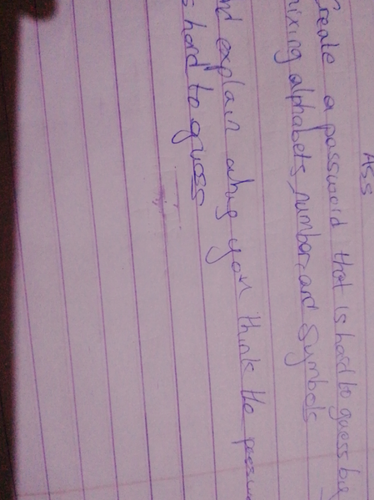 Ass
Create a password that is hard to guess by
mixing alphabets, number, and symbols
and explain why you think the
is hard to guess